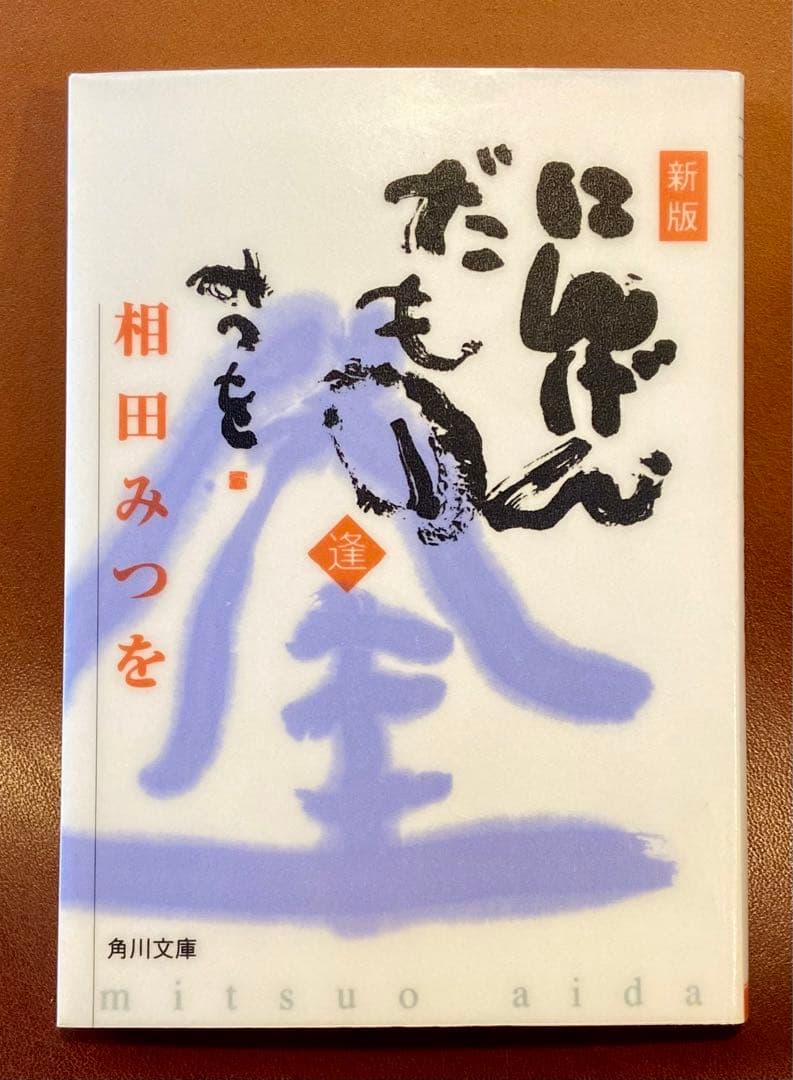 新版
にんげん
だもの
みつを
逢
相田みつを
角川文庫
mitsuo aida